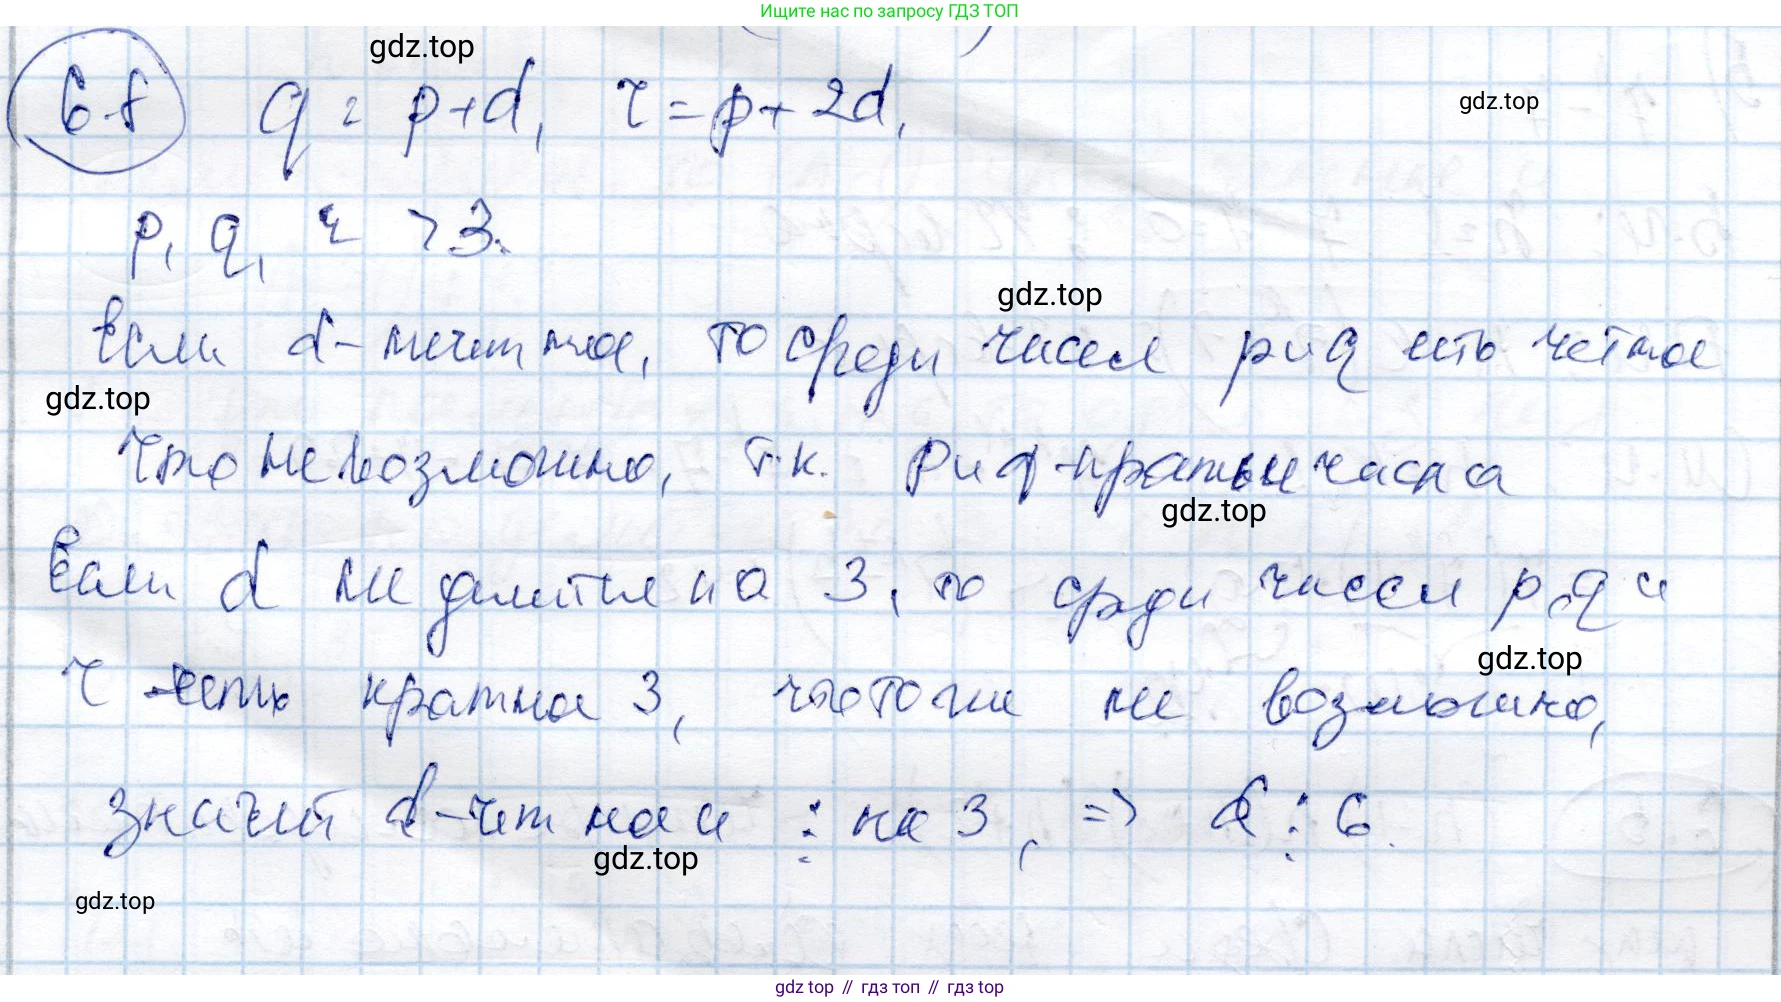 Ищите нас по запросу ГДЗ ТОП
gdz.top
6.8 q = p+d, r = p+2d,
gdz.top
p, q, r > 3.
gdz.top
Если d - нечетное, то среди чисел p и q есть четное
gdz.top
что невозможно, т.к. p и q - кратные числа
gdz.top
Если d не делится на 3, то среди чисел p, q и
gdz.top
r - есть кратное 3, что тоже не возможно,
значит d - четная и ⋮ на 3, => d ⋮ 6.
gdz.top
gdz.top
gdz top // гдз топ // gdz top